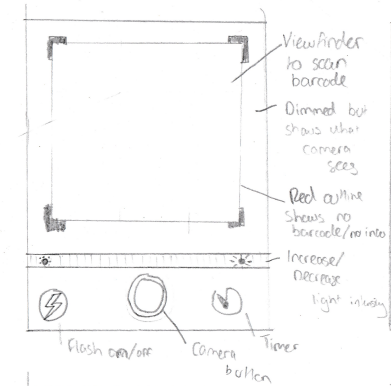 Viewfinder
to scan
barcode
Dimmed but
shows what
camera
sees
Red outline
shows no
barcode/no info
Increase/
Decrease
light intensity
Flash on/off
Camera
button
Timer